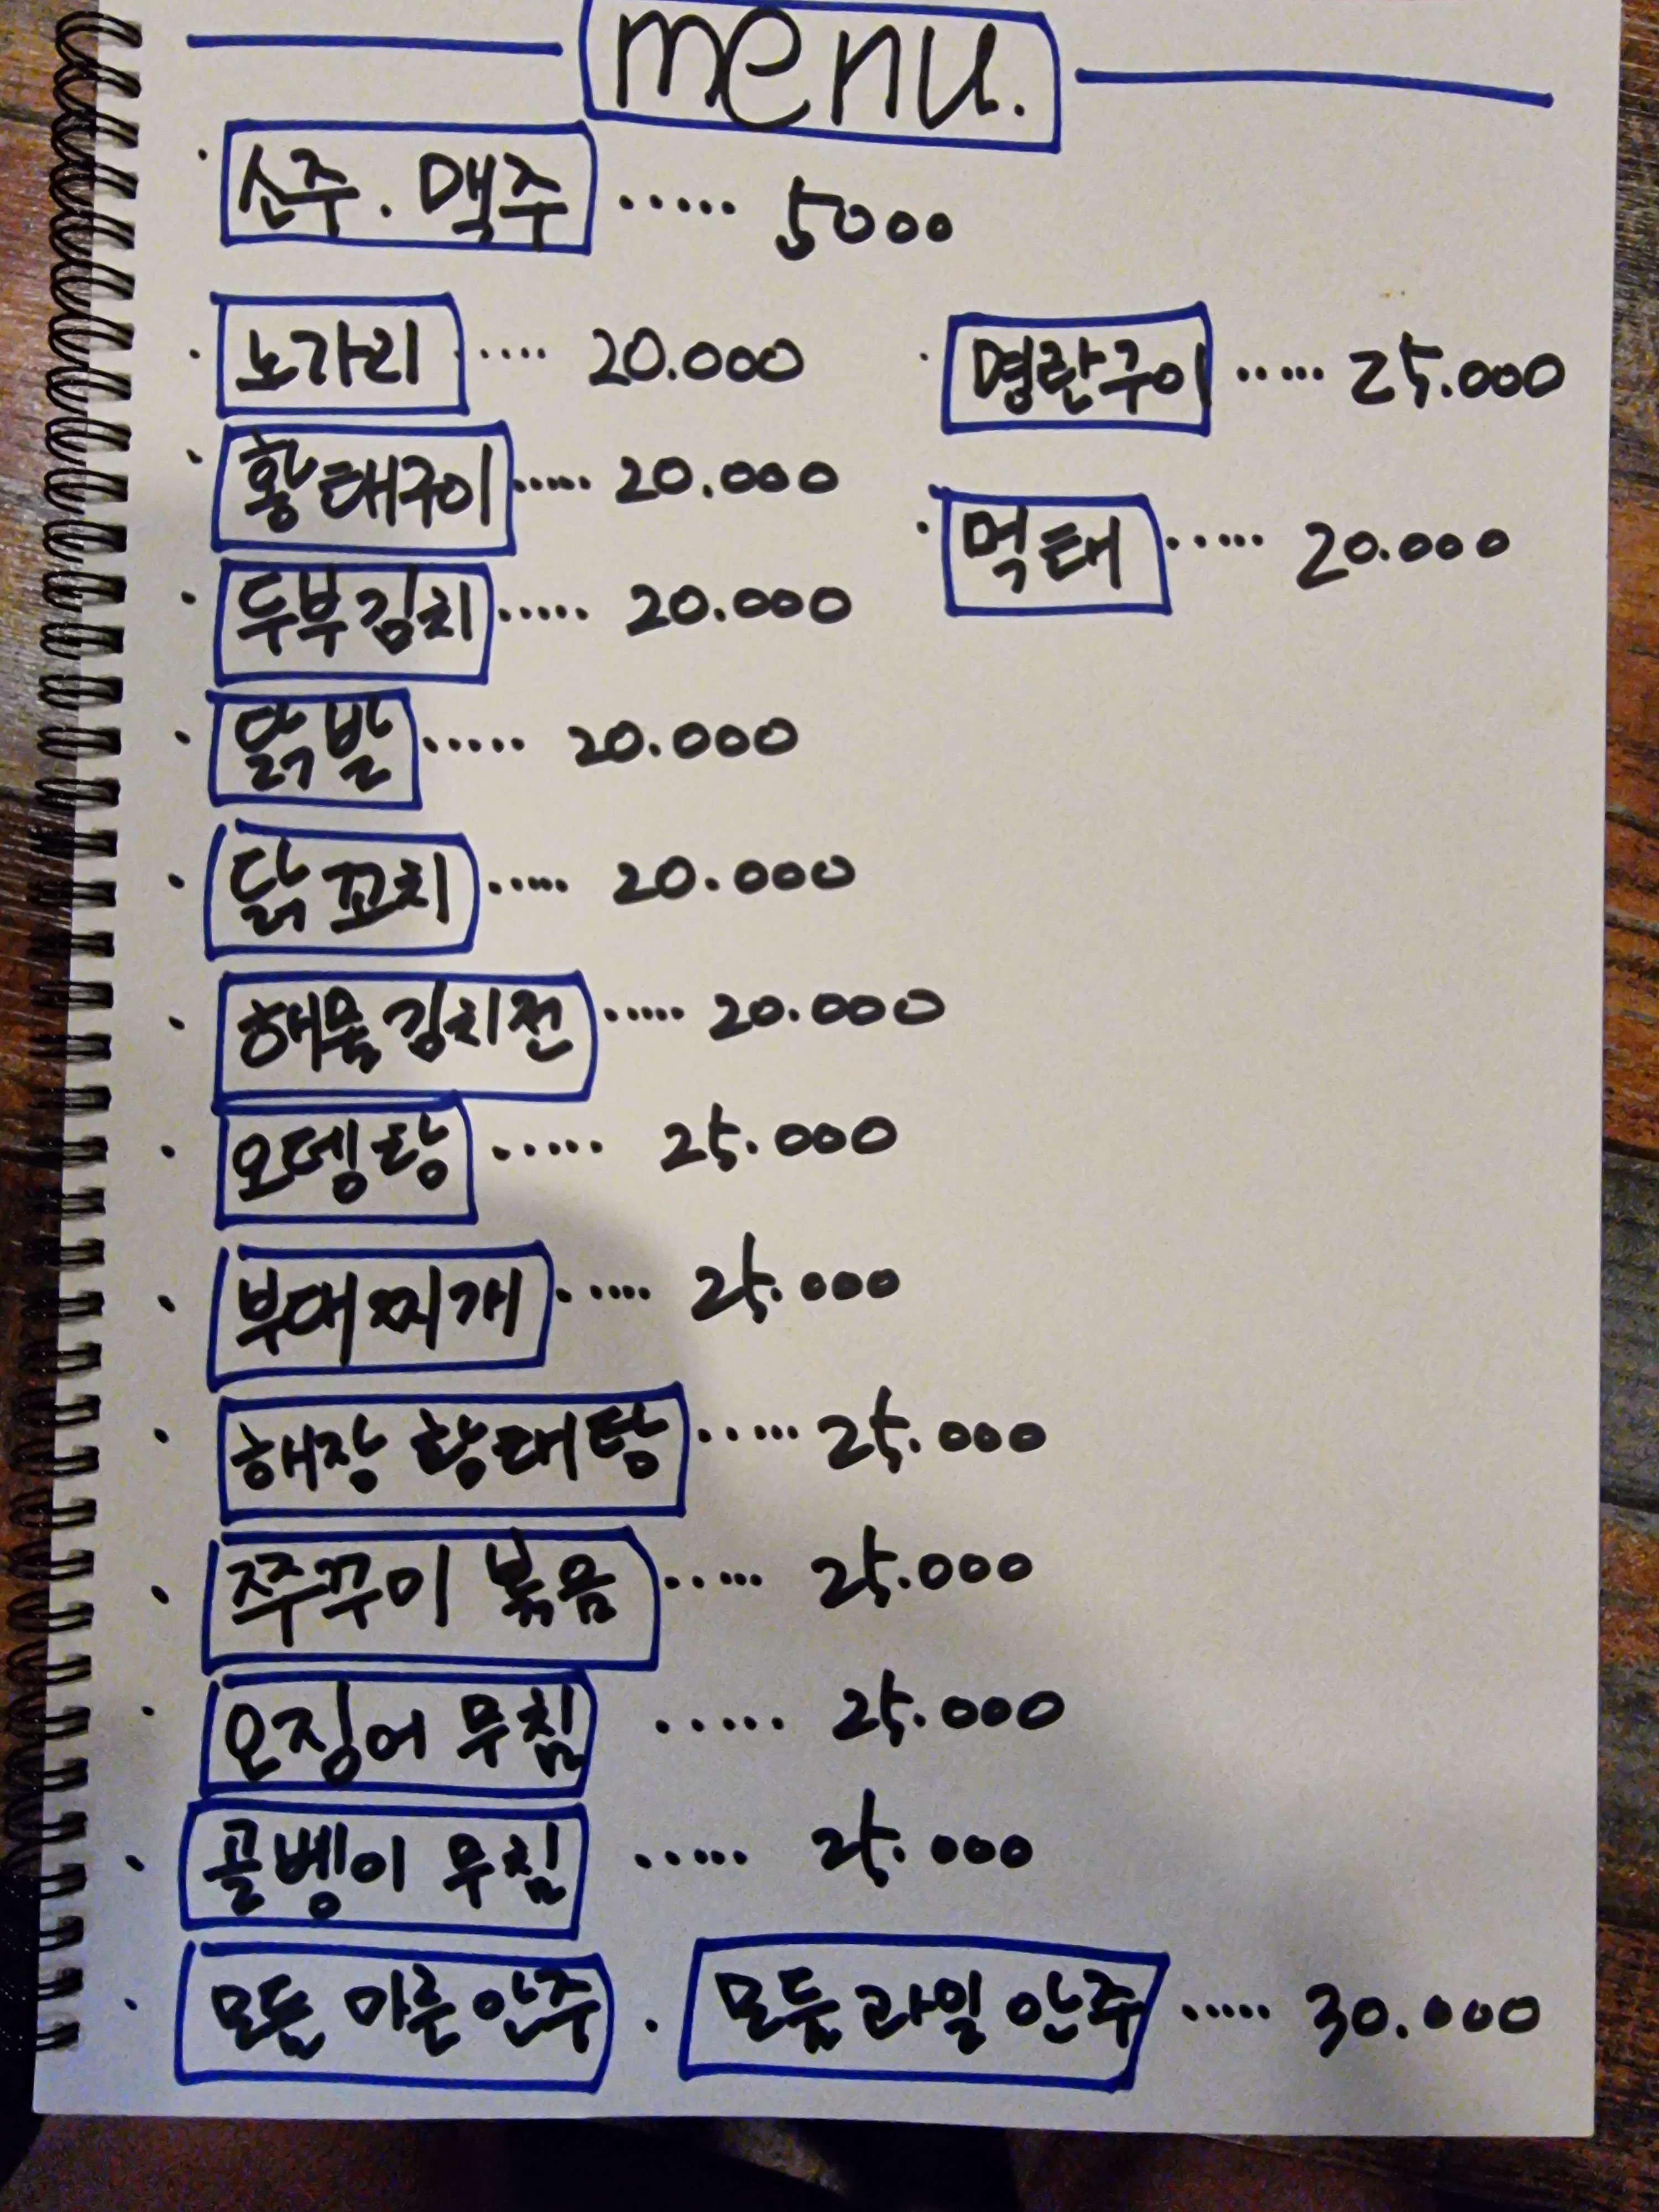 menu.
· 소주. 맥주 ····· 5000
· 노가리 ···· 20.000
· 명란구이 ····· 25.000
· 황태구이 ····· 20.000
· 먹태 ····· 20.000
· 두부김치 ····· 20.000
· 닭발 ····· 20.000
· 닭꼬치 ····· 20.000
· 해물김치전 ····· 20.000
· 오뎅탕 ····· 25.000
· 부대찌개 ····· 25.000
· 해장 황태탕 ····· 25.000
· 쭈꾸미 볶음 ····· 25.000
· 오징어 무침 ····· 25.000
· 골벵이 무침 ····· 25.000
· 모든 마른안주 . 모듬과일안주 ····· 30.000